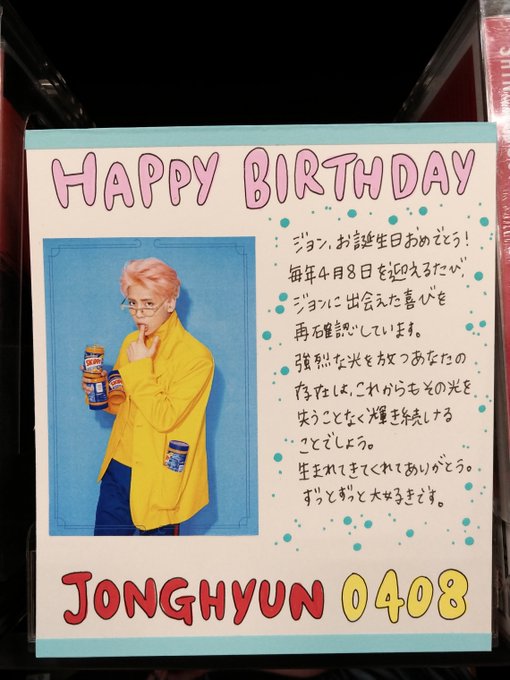 HAPPY BIRTHDAY
ジョン、お誕生日おめでとう!
毎年4月8日を迎えるたび、
ジョンに出会えた喜びを
再確認しています。
強烈な光を放つあなたの
存在は、これからもその光を
失うことなく輝き続ける
ことでしょう。
生まれてきてくれてありがとう。
ずっとずっと大好きです。
SKIPPY
JONGHYUN 0408